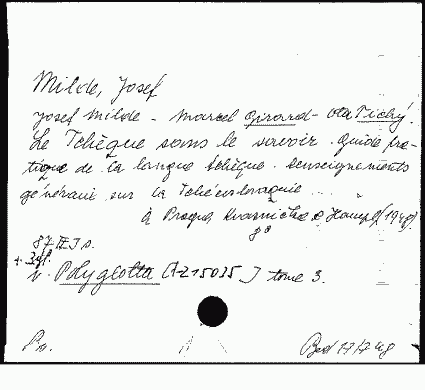 Milde, Josef
Josef Milde - Marcel Girard - Ota Tichý.
Le Tchèque sans le savoir. Guide pra-
tique de la langue tchèque. Renseignements
généraux sur la Tchécoslovaquie ...
à Prague, Kvasnička e Hampl (1948).
8°
87 III s.
+ 3 pl.
v. Polyglotta (AZ 15035) tome 3.
17/7 48